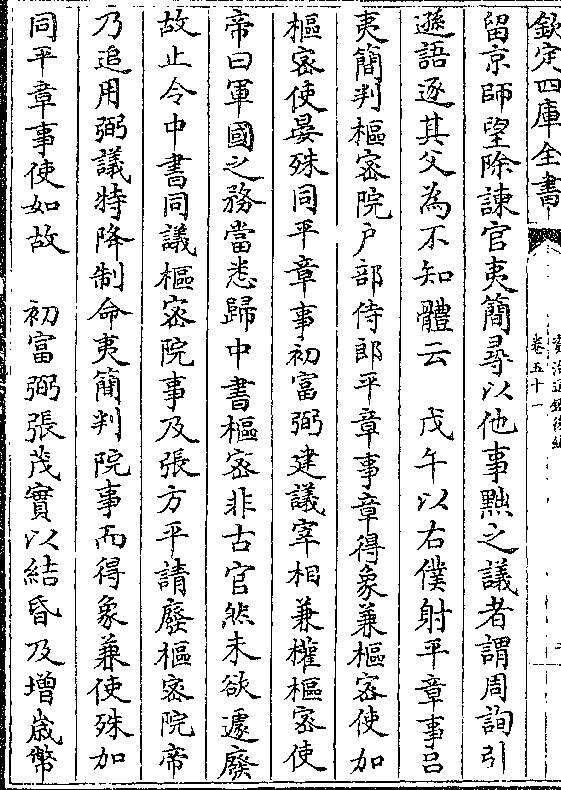 欽定四庫全書
資治通鑑後編
卷五十一
留京師望除諫官夷簡尋以他事黜之議者謂周詢引
遜語逐其父為不知體云　戊午以右僕射平章事呂
夷簡判樞密院戶部侍郎平章事章得象兼樞密使加
樞密使晏殊同平章事初富弼建議宰相兼權樞密使
帝曰軍國之務當悉歸中書樞密非古官然未欲遽廢
故止令中書同議樞密院事及張方平請廢樞密院帝
乃追用弼議特降制命夷簡判院事而得象兼使殊加
同平章事使如故　初富弼張茂實以結昏及增歲幣